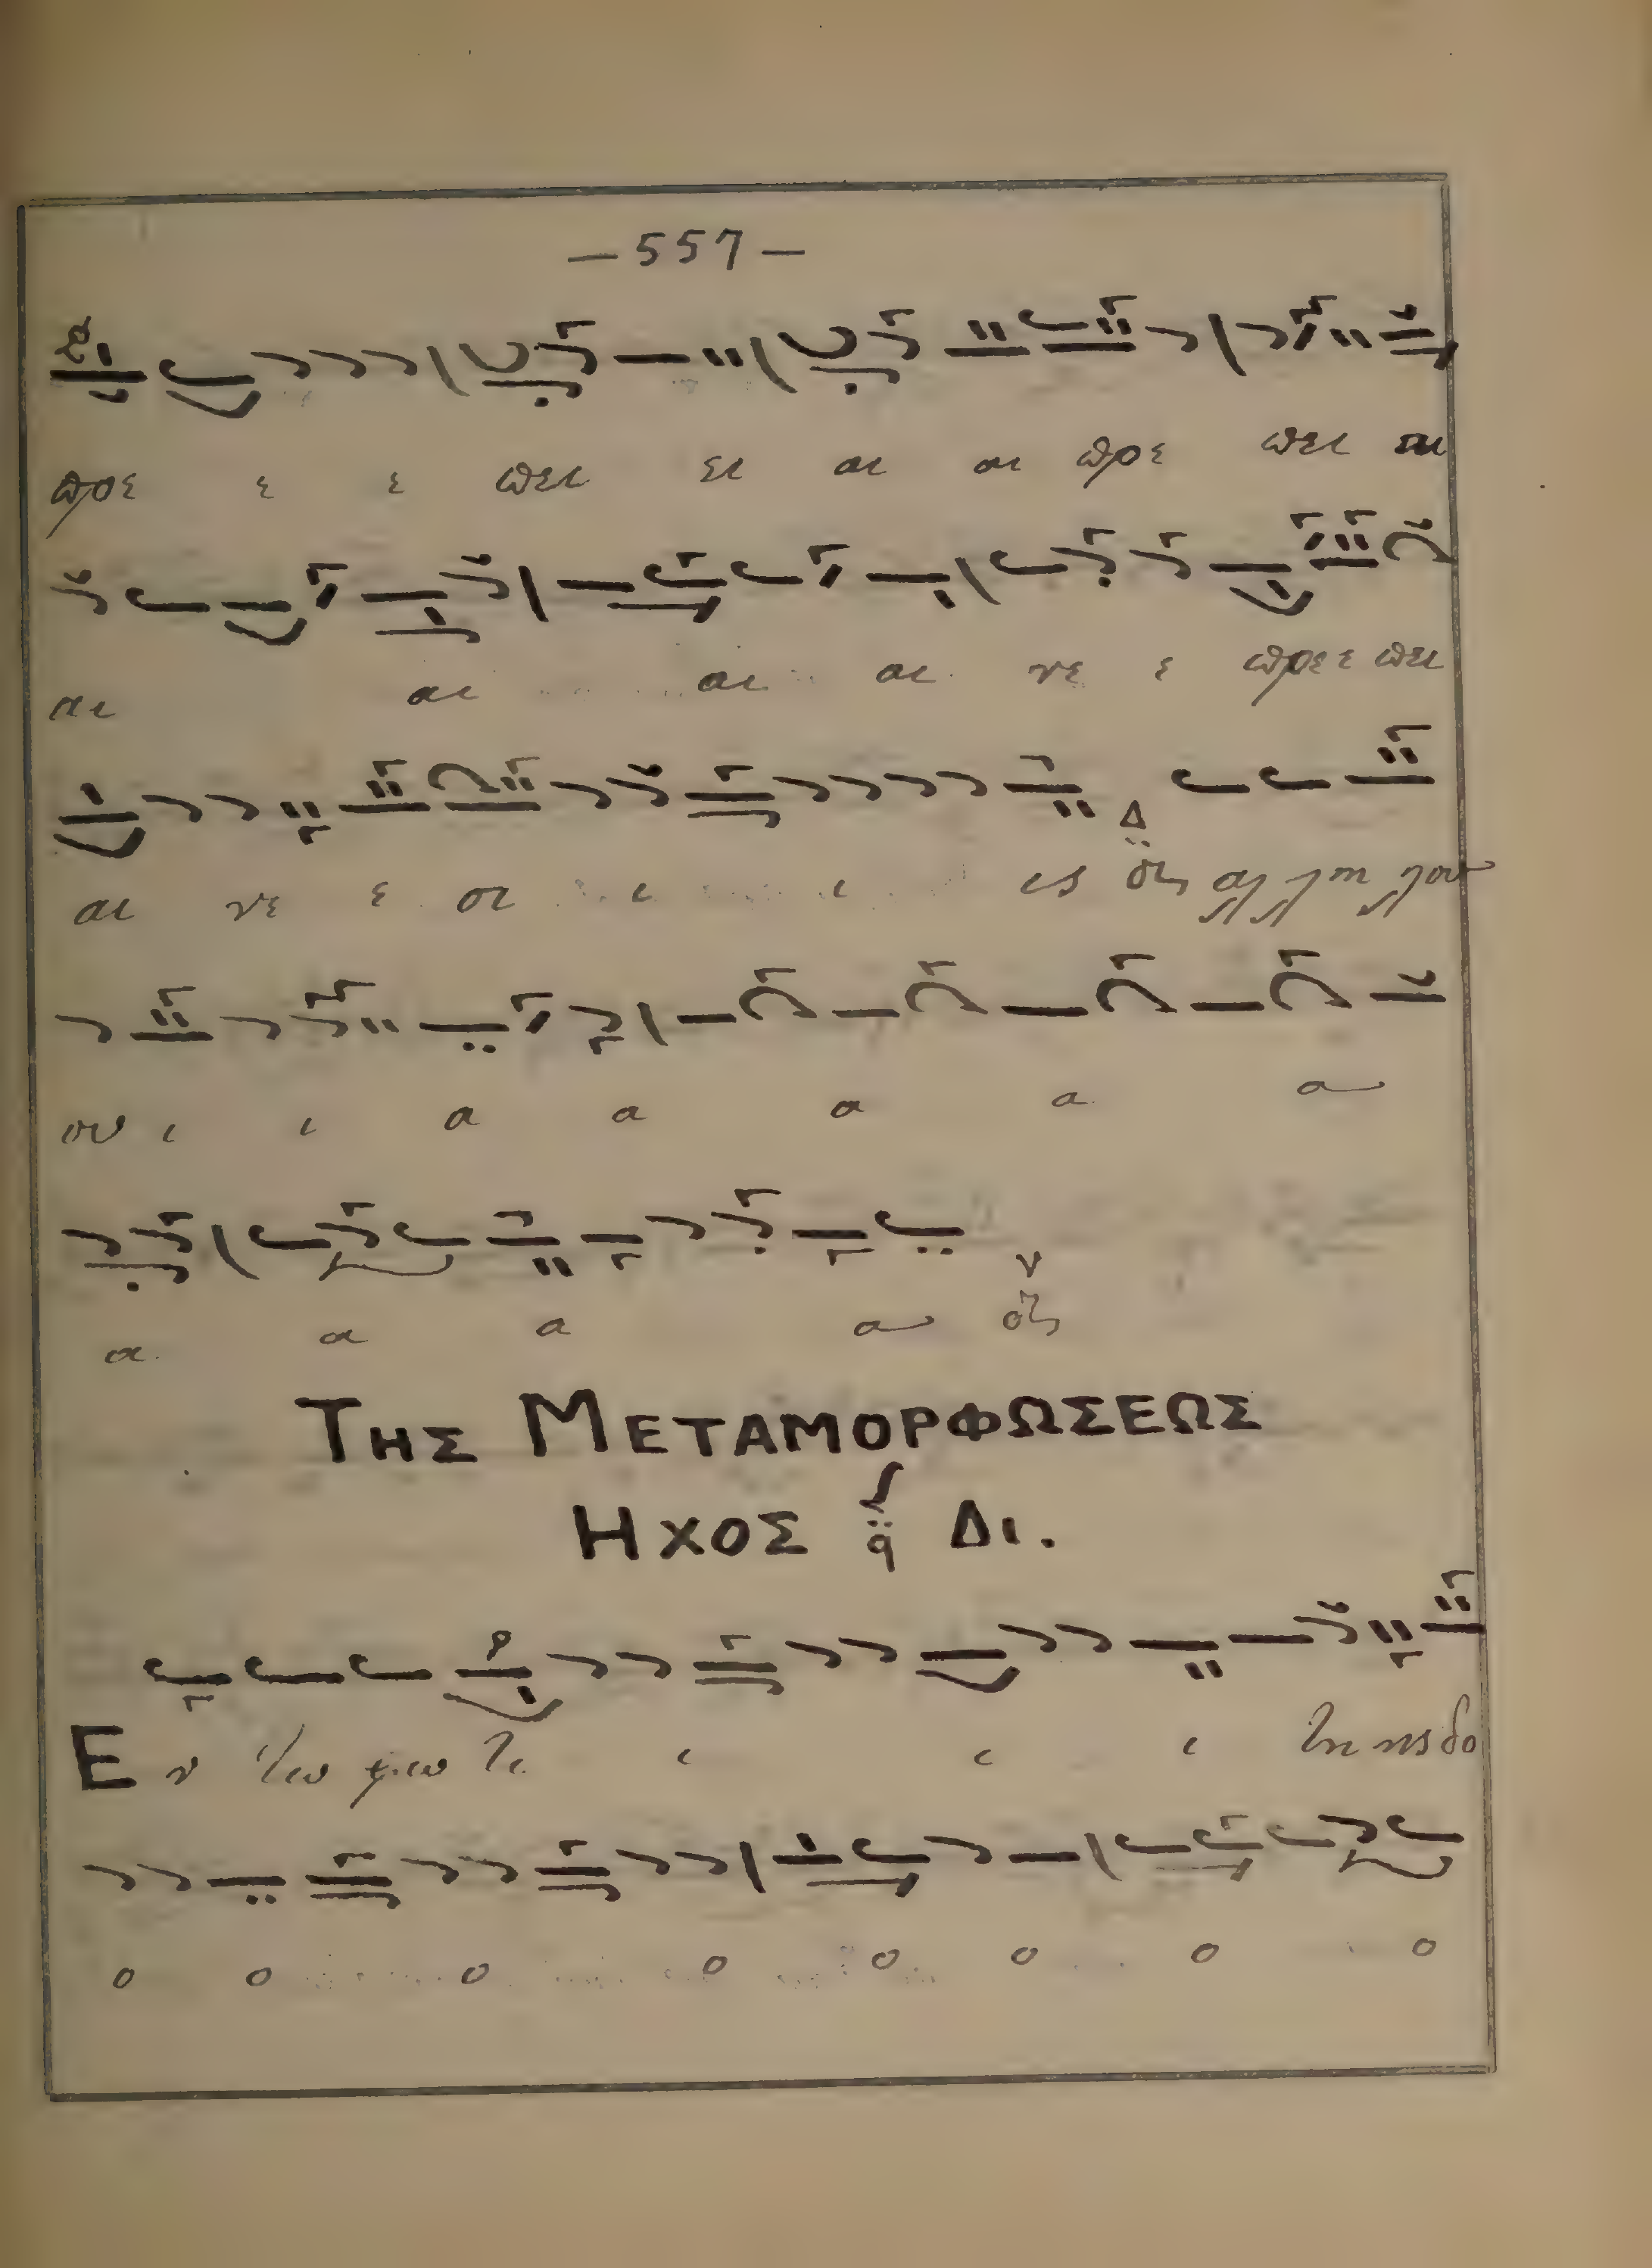 — 557 —
πρε ε ε πει ει αι αι πρε πει αι
αι αι αι αι νε ε πρε ε πει
αι νε ε σι ι ι ις αλ λη λου
ου ι ι α α α α α
α α α α
ΤΗΣ ΜΕΤΑΜΟΡΦΩΣΕΩΣ
ΗΧΟΣ Δι.
Ε ν τω φω τι ι ι ι τη ης δο
ο ο ο ο ο ο ο ο